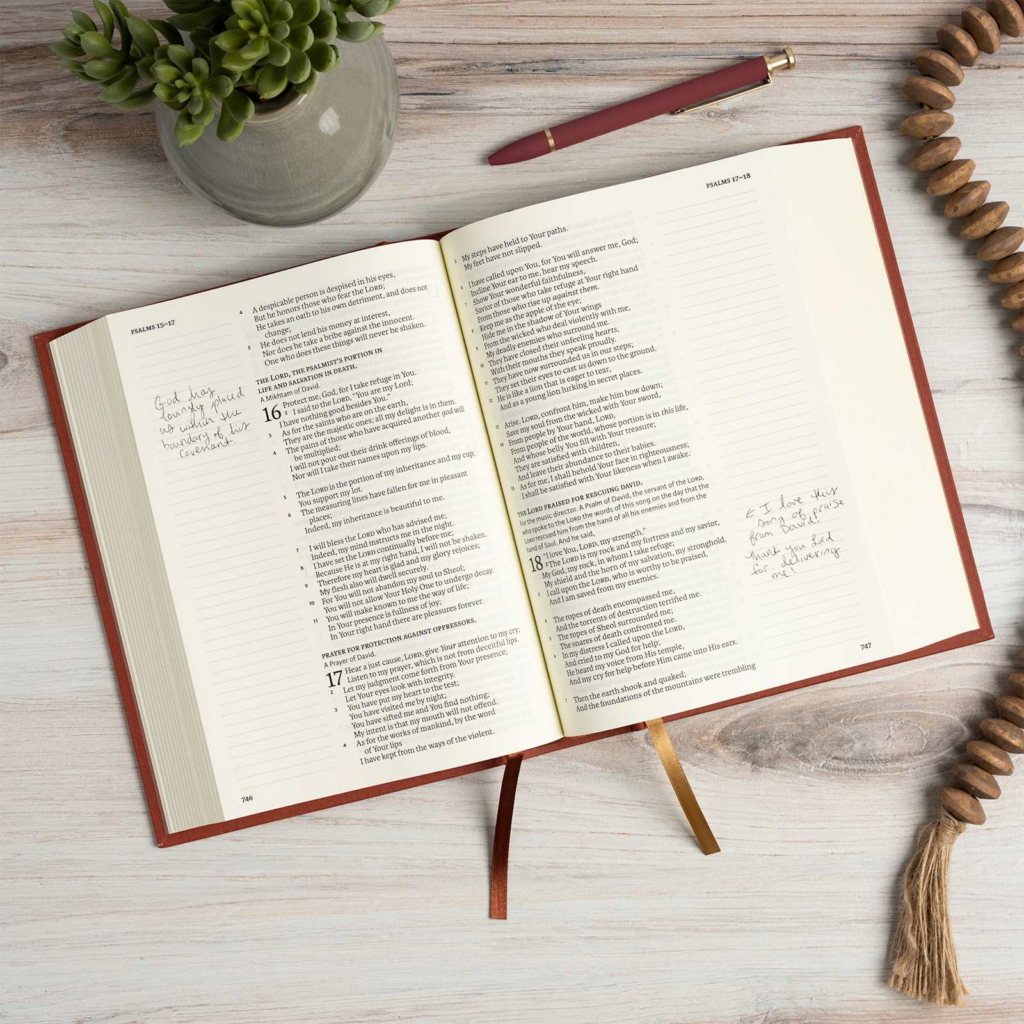 PSALMS 15–17
4 A despicable person is despised in his eyes,
But he honors those who fear the LORD;
He takes an oath to his own detriment, and does not
change;
5 He does not lend his money at interest,
Nor does he take a bribe against the innocent.
One who does these things will never be shaken.
THE LORD, THE PSALMIST'S PORTION IN
LIFE AND SALVATION IN DEATH.
A Mikhtam of David.
16 Protect me, God, for I take refuge in You.
2 I said to the LORD, "You are my Lord;
I have nothing good besides You."
3 As for the saints who are on the earth,
They are the majestic ones; all my delight is in them.
4 The pains of those who have acquired another god will
be multiplied;
I will not pour out their drink offerings of blood,
Nor will I take their names upon my lips.
5 The LORD is the portion of my inheritance and my cup;
You support my lot.
6 The measuring lines have fallen for me in pleasant
places;
Indeed, my inheritance is beautiful to me.
7 I will bless the LORD who has advised me;
Indeed, my mind instructs me in the night.
8 I have set the LORD continually before me;
Because He is at my right hand, I will not be shaken.
9 Therefore my heart is glad and my glory rejoices;
My flesh also will dwell securely.
10 For You will not abandon my soul to Sheol;
You will not allow Your Holy One to undergo decay.
11 You will make known to me the way of life;
In Your presence is fullness of joy;
In Your right hand there are pleasures forever.
PRAYER FOR PROTECTION AGAINST OPPRESSORS.
A Prayer of David.
17 Hear a just cause, LORD, give Your attention to my cry;
Listen to my prayer, which is not from deceitful lips.
2 Let my judgment come forth from Your presence;
Let Your eyes look with integrity.
3 You have put my heart to the test;
You have visited me by night;
You have sifted me and You find nothing;
My intent is that my mouth will not offend.
4 As for the works of mankind, by the word
of Your lips
I have kept from the ways of the violent.
God has
lovingly placed
us within the
boundary of his
covenant
746
PSALMS 17–18
5 My steps have held to Your paths.
My feet have not slipped.
6 I have called upon You, for You will answer me, God;
Incline Your ear to me, hear my speech.
7 Show Your wonderful faithfulness,
Savior of those who take refuge at Your right hand
From those who rise up against them.
8 Keep me as the apple of the eye;
Hide me in the shadow of Your wings
9 From the wicked who deal violently with me,
My deadly enemies who surround me.
10 They have closed their unfeeling hearts,
With their mouths they speak proudly.
11 They have now surrounded us in our steps;
They set their eyes to cast us down to the ground.
12 He is like a lion that is eager to tear,
And as a young lion lurking in secret places.
13 Arise, LORD, confront him, make him bow down;
Save my soul from the wicked with Your sword,
14 From people by Your hand, LORD,
From people of the world, whose portion is in this life,
And whose belly You fill with Your treasure;
They are satisfied with children,
And leave their abundance to their babies.
15 As for me, I shall behold Your face in righteousness;
I shall be satisfied with Your likeness when I awake.
THE LORD PRAISED FOR RESCUING DAVID.
For the music director. A Psalm of David, the servant of the LORD,
who spoke to the LORD the words of this song on the day that the
LORD rescued him from the hand of all his enemies and from the
hand of Saul. And he said,
18 "I love You, LORD, my strength."
2 The LORD is my rock and my fortress and my savior,
My God, my rock, in whom I take refuge;
My shield and the horn of my salvation, my stronghold.
3 I call upon the LORD, who is worthy to be praised,
And I am saved from my enemies.
4 The ropes of death encompassed me,
And the torrents of destruction terrified me.
5 The ropes of Sheol surrounded me;
The snares of death confronted me.
6 In my distress I called upon the LORD,
And cried to my God for help;
He heard my voice from His temple,
And my cry for help before Him came into His ears.
7 Then the earth shook and quaked;
And the foundations of the mountains were trembling
← I love this
song of praise
from David!
Thank you Lord
for delivering
me!
747